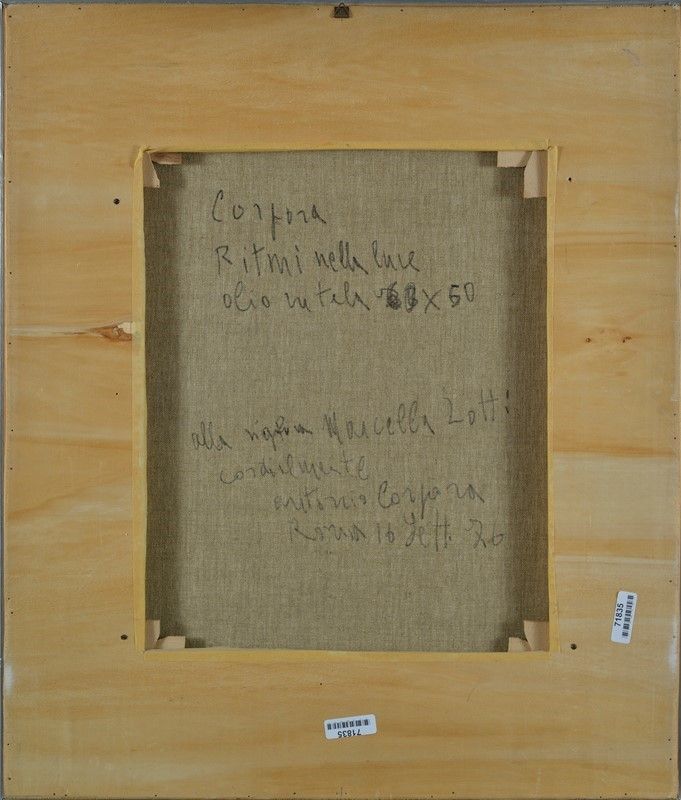 Corpora
Ritmi nella luce
olio su tela x 50
alla signora Marcella Zotti
cordialmente
antonio Corpora
Roma 16 Sett. 76
71835
71835